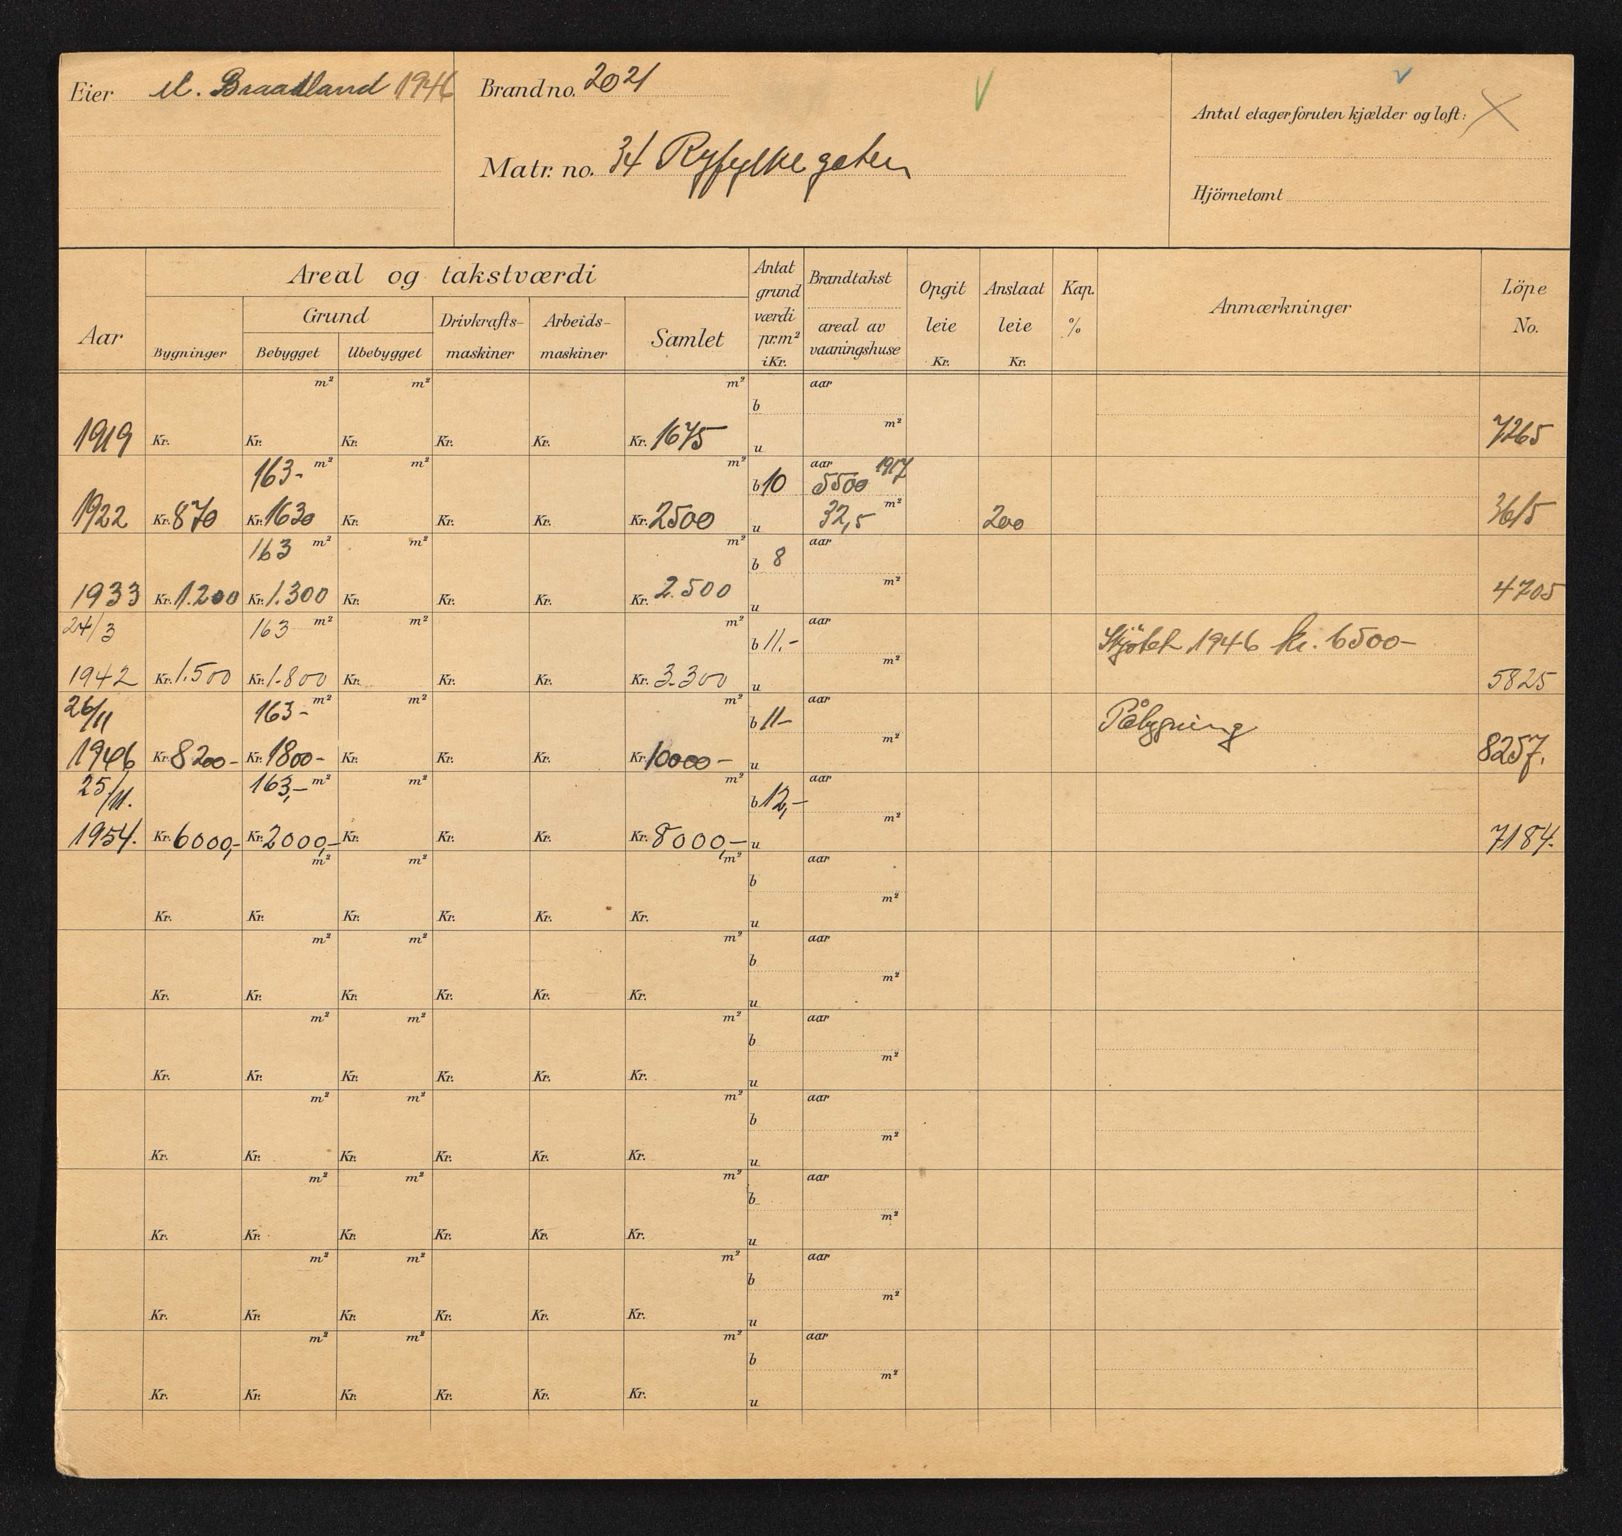 Eier M. Braadland 1946
Brand no. 2021
Matr. no. 34 Ryfylkegaten
Antal etager foruten kjælder og loft:
Hjörnetomt
Aar
Areal og takstværdi
Bygninger
Grund
Bebygget
Ubebygget
Drivkrafts-
maskiner
Arbeids-
maskiner
Samlet
Antat
grund
værdi
pr.m²
i Kr.
Brandtakst
areal av
vaaningshuse
Opgit
leie
Kr.
Anslaat
leie
Kr.
Kap.
%
Anmærkninger
Löpe
No.
m² m² m² aar
b
m²
1919 Kr. Kr. Kr. Kr. Kr. Kr. 1675 u 7265
163- m² m² m² b 10 aar 1917
5500
1922 Kr. 870 Kr. 1630 Kr. Kr. Kr. Kr. 2500 u 32,5 m² 200 3615
163 m² m² m² b 8 aar
m²
1933 Kr. 1.200 Kr. 1.300 Kr. Kr. Kr. Kr. 2.500 u 4705
24/3 163 m² m² m² b 11.- aar Skjötet 1946 kr. 6500-
m²
1942 Kr. 1.500 Kr. 1.800 Kr. Kr. Kr. Kr. 3.300 u 5825
26/11 163- m² m² m² b 11- aar Påbygning
m²
1946 Kr. 8200- Kr. 1800- Kr. Kr. Kr. Kr. 10000- u 8257.
25/11. 163,- m² m² m² b 12,- aar
m²
1954. Kr. 6000,- Kr. 2000,- Kr. Kr. Kr. Kr. 8000,- u 7184.
m² m² m² aar
b
m²
Kr. Kr. Kr. Kr. Kr. Kr. u
m² m² m² aar
b
m²
Kr. Kr. Kr. Kr. Kr. Kr. u
m² m² m² aar
b
m²
Kr. Kr. Kr. Kr. Kr. Kr. u
m² m² m² aar
b
m²
Kr. Kr. Kr. Kr. Kr. Kr. u
m² m² m² aar
b
m²
Kr. Kr. Kr. Kr. Kr. Kr. u
m² m² m² aar
b
m²
Kr. Kr. Kr. Kr. Kr. Kr. u
m² m² m² aar
b
m²
Kr. Kr. Kr. Kr. Kr. Kr. u